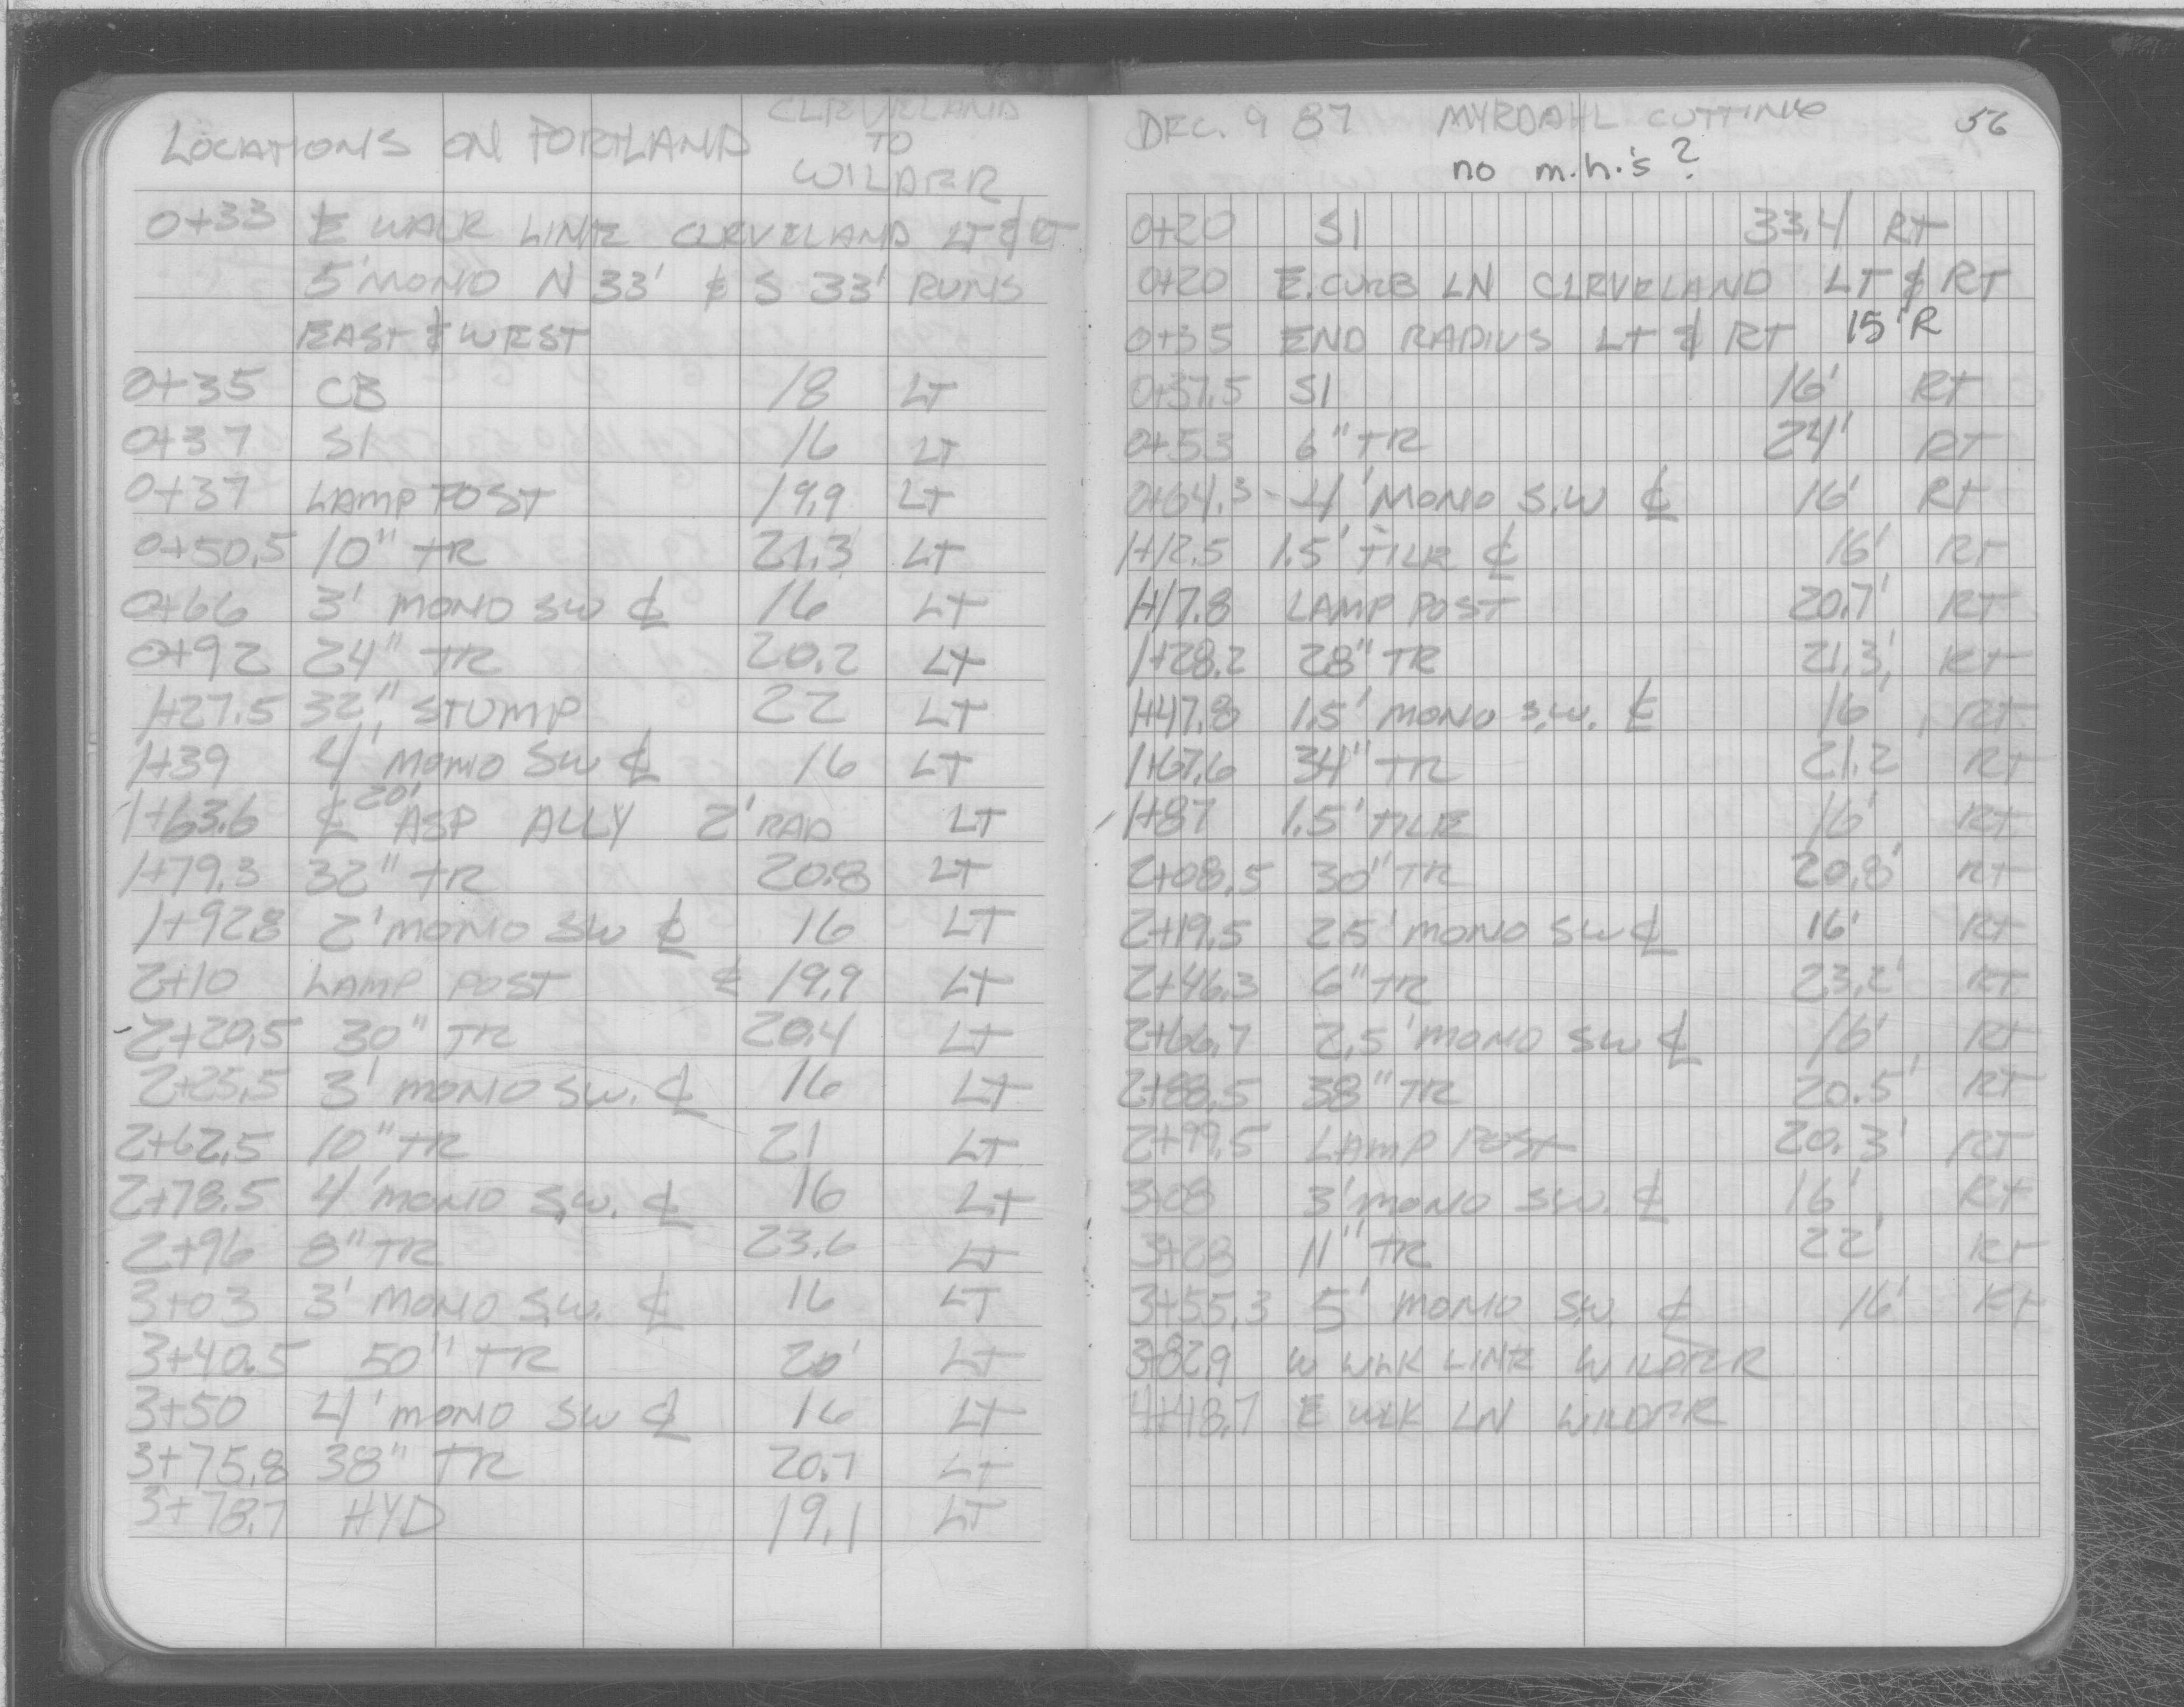 LOCATIONS ON PORTLAND CLEVELAND
TO
WILDER
0+33 E WALK LINE CLEVELAND LT & RT
5' MONO N 33' & S 33' RUNS
EAST & WEST
0+35 CB 18 LT
0+37 S1 16 LT
0+37 LAMP POST 19.9 LT
0+50.5 10" TR 21.3 LT
0+66 3' MONO SW ℄ 16 LT
0+92 24" TR 20.2 LT
1+27.5 32" STUMP 22 LT
1+39 4' MONO SW ℄ 16 LT
1+63.6 ℄ 20' ASP ALLY 2' RAD LT
1+79.3 32" TR 20.8 LT
1+92.8 2' MONO SW ℄ 16 LT
2+10 LAMP POST ¢ 19.9 LT
2+20.5 30" TR 20.4 LT
2+25.5 3' MONO SW. ℄ 16 LT
2+62.5 10" TR 21 LT
2+78.5 4' MONO S.W. ℄ 16 LT
2+96 8" TR 23.6 LT
3+03 3' MONO S.W. ℄ 16 LT
3+40.5 50" TR 20' LT
3+50 4' MONO SW ℄ 16 LT
3+75.8 38" TR 20.7 LT
3+78.7 HYD 19.1 LT
DEC. 9 87 MYRDAHL CUTTING 56
no m.h.'s ?
0+20 S1 33.4 RT
0+20 E. CURB LN CLEVELAND LT & RT
0+35 END RADIUS LT & RT 15' R
0+37.5 S1 16' RT
0+53 6" TR 24' RT
0+64.3 - 4' MONO S.W ℄ 16' RT
1+12.5 1.5' TILE ℄ 16' RT
1+17.8 LAMP POST 20.7' RT
1+28.2 28" TR 21.3' RT
1+47.8 1.5' MONO S.W. ℄ 16' RT
1+67.6 34" TR 21.2 RT
1+87 1.5' TILE 16' RT
2+08.5 30" TR 20.8' RT
2+19.5 2.5' MONO SW ℄ 16' RT
2+46.3 6" TR 23.2' RT
2+66.7 2.5' MONO SW ℄ 16' RT
2+88.5 38" TR 20.5' RT
2+99.5 LAMP POST 20.3' RT
3+08 3' MONO S.W. ℄ 16' RT
3+28 11" TR 22' RT
3+55.3 5' MONO S.W. ℄ 16' RT
3+82.9 W WLK LINE WILDER
4+48.7 E WLK LN WILDER